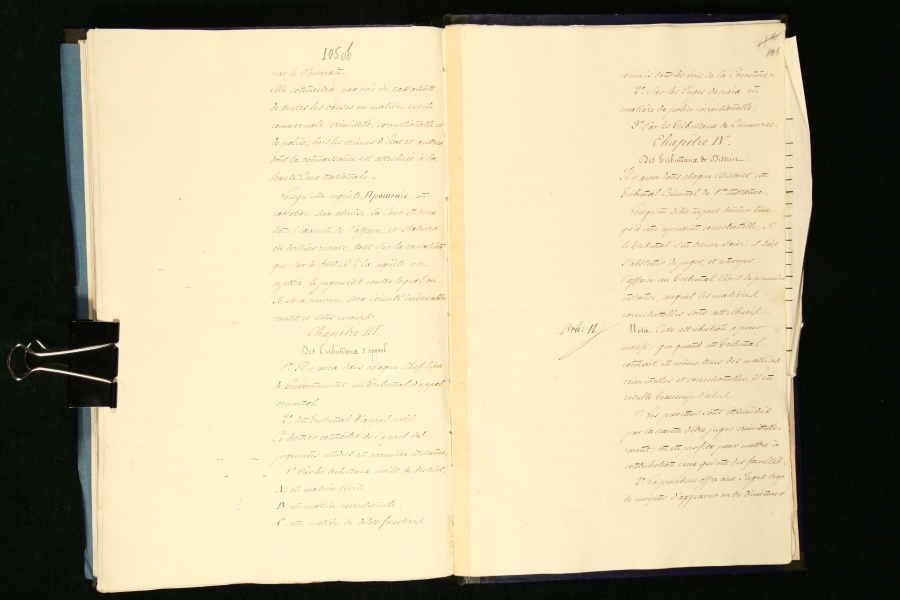 105 06
par le Souverain.
Elle connaîtra par voie de cassation,
de toutes les causes en matière civile
commerciale, criminelle, correctionnelle et
de police, hors les crimes d'Etat et autres
dont la connaissance est attribuée à la
haute Cour nationale.
Lorsqu'une requête, en
cassation sera admise, la Cour entrera
dans l'examen de l'affaire, et statuera
en dernier ressort, tant sur la cassation
que sur le fond. Si la requête est
rejetée, le jugement contre lequel on
se sera pourvu, sera exécuté
et sans recours.
Chapitre III.
Des Tribunaux d'appel
1°. Il y aura dans chaque Chef lieu
de Gouvernement un Tribunal d'appel
criminel
2°. Un Tribunal d'appel civil.
Ce dernier connaîtra de l'appel des
jugements rendus en première instance,
1° Par les tribunaux civils de district,
A. en matière civile,
B. en matière correctionnelle,
C. en matière de délits forestiers
commis dans les bois de la Couronne.
2°. Par les Juges de paix en
matière de police correctionnelle;
3° Par les Tribunaux de Commerce.
Chapitre IV.
Des Tribunaux de District.
Il y aura dans chaque District un
Tribunal Criminel de 1ère instance.
Lorsqu'un délit ne peut donner lieu
qu'à une punition correctionnelle, si
le tribunal s'en trouve saisi, il doit
s'abstenir de juger, et renvoyer
l'affaire au Tribunal Civil de première
instance, auquel les matières
correctionnelles sont attribuées.
Arti: 11. Nota. Cette attribution a pour
motif, que quand un Tribunal
connait en même tems des matières
criminelles et correctionnelles, il en
résulte beaucoup d'abus:
1° Les prévenus sont
par la crainte d'être jugés criminelle-
ment; on en profite pour mettre à
contribution ceux qui ont des facultés.
2°. La procédure offre aux Juges trop
de moyens d'aggraver ou de diminuer